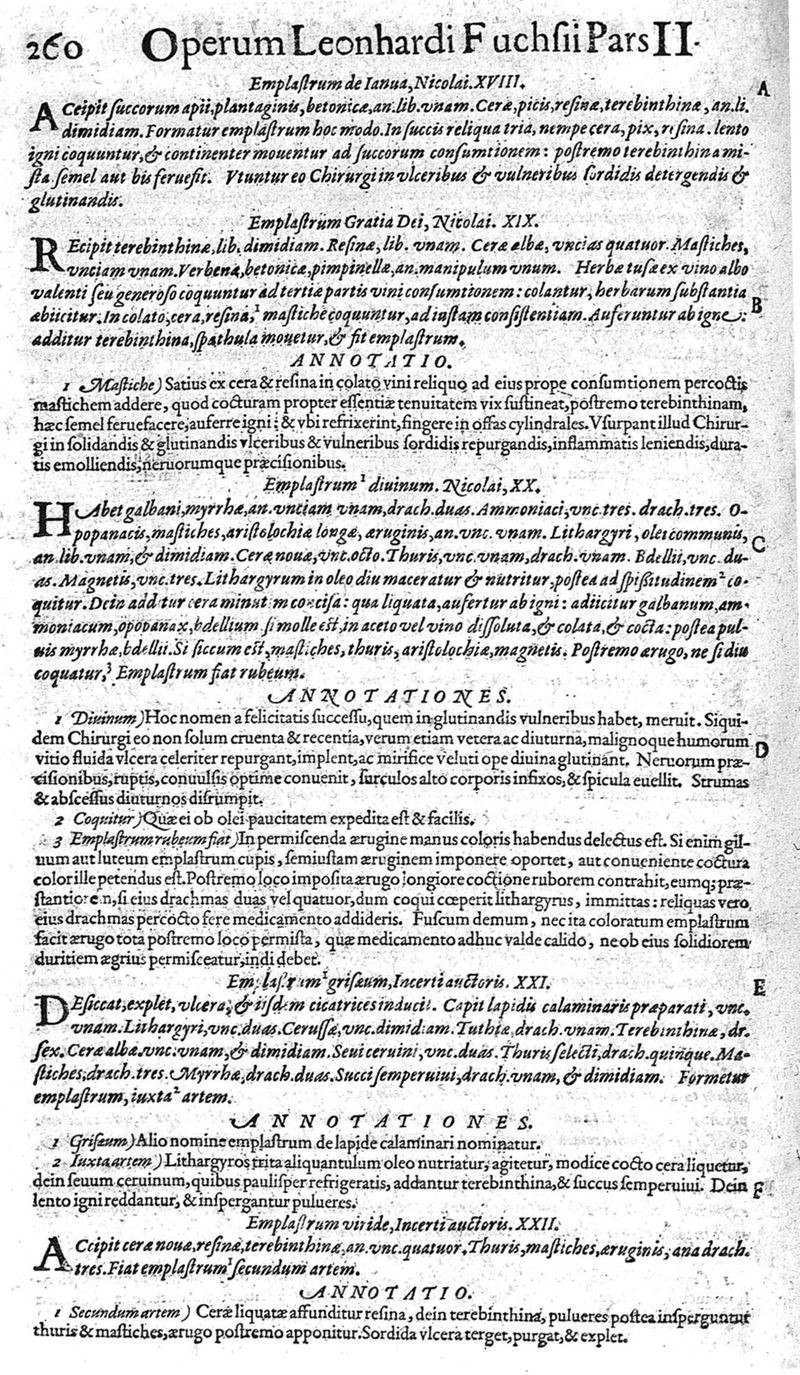 260 Operum Leonhardi Fuchsii Pars II.
Emplastrum de Ianua, Nicolai. XVIII.
A
ACcipit succorum apii, plantaginis, betonicæ, an. lib. vnam. Ceræ, picis, resinæ, terebinthinæ, an. li.
dimidiam. Formatur emplastrum hoc modo. In succis reliqua tria, nempe cera, pix, resina. lento
igni coquuntur, & continenter mouentur ad succorum consumtionem: postremo terebinthina mi-
sta semel aut bis feruefit. Vtuntur eo Chirurgi in vlceribus & vulneribus sordidis detergendis &
glutinandis.
Emplastrum Gratia Dei, Nicolai. XIX.
REcipit terebinthinæ, lib. dimidiam. Resinæ, lib. vnam. Ceræ albæ, vncias quatuor. Mastiches,
vnciam vnam. Verbenæ, betonicæ, pimpinellæ, an. manipulum vnum. Herbæ tusæ ex vino albo
valenti seu generoso coquuntur ad tertiæ partis vini consumtionem: colantur, herbarum substantia
B
abiicitur. In colato, cera, resina, 1 mastiche coquuntur, ad iustam consistentiam. Auferuntur ab igne:
additur terebinthina, spathula mouetur, & fit emplastrum.
ANNOTATIO.
1 Mastiche) Satius ex cera & resina in colato vini reliquo ad eius prope consumtionem percoctis
mastichem addere, quod cocturam propter essentiæ tenuitatem vix sustineat, postremo terebinthinam,
hæc semel feruefacere, auferre igni: & vbi refrixerint, fingere in offas cylindrales. Vsurpant illud Chirur-
gi in solidandis & glutinandis vlceribus & vulneribus sordidis repurgandis, inflammatis leniendis, dura-
tis emolliendis, neruorumque præcisionibus.
Emplastrum 1 diuinum. Nicolai, XX.
HAbet galbani, myrrhæ, an. vnciam vnam, drach. duas. Ammoniaci, vnc. tres. drach. tres. O-
popanacis, mastiches, aristolochiæ longæ, æruginis, an. vnc. vnam. Lithargyri, olei communis,
C
an. lib. vnam, & dimidiam. Ceræ nouæ, vnc. octo. Thuris, vnc. vnam, drach. vnam. Bdellii, vnc. du-
as. Magnetis, vnc. tres. Lithargyrum in oleo diu maceratur & nutritur, postea ad spissitudinem 2 co-
quitur. Dein additur cera minutim concisa: qua liquata, aufertur ab igni: adiicitur galbanum, am-
moniacum, opopanax, bdellium si molle est, in aceto vel vino dissoluta, & colata, & cocta: postea pul-
uis myrrhæ, bdellii. Si siccum est, mastiches, thuris, aristolochiæ, magnetis. Postremo ærugo, ne si diu
coquatur, 3 Emplastrum fiat rubeum.
ANNOTATIONES.
1 Diuinum) Hoc nomen a felicitatis successu, quem in glutinandis vulneribus habet, meruit. Siqui-
dem Chirurgi eo non solum cruenta & recentia, verum etiam vetera ac diuturna, malignoque humorum
D
vitio fluida vlcera celeriter repurgant, implent, ac mirifice veluti ope diuina glutinant. Neruorum præ-
cisionibus, ruptis, conuulsis optime conuenit, surculos alto corporis infixos, & spicula euellit. Strumas
& abscessus diuturnos disrumpit.
2 Coquitur) Quæ ei ob olei paucitatem expedita est & facilis.
3 Emplastrum rubeum fiat) In permiscenda ærugine manus coloris habendus delectus est. Si enim gil-
uum aut luteum emplastrum cupis, semiustam æruginem imponere oportet, aut conueniente coctura
color ille petendus est. Postremo loco imposita ærugo longiore coctione ruborem contrahit, eumq; præ-
stantiorem, si eius drachmas duas vel quatuor, dum coqui cœperit lithargyrus, immittas: reliquas vero
eius drachmas percocto fere medicamento addideris. Fuscum demum, nec ita coloratum emplastrum
facit ærugo tota postremo loco permista, quæ medicamento adhuc valde calido, ne ob eius solidiorem
duritiem ægrius permisceatur, indi debet.
Emplastrum 1 griseum, Incerti auctoris. XXI.
E
DEsiccat, explet, vlcera, & iisdem cicatrices inducit. Capit lapidis calaminaris præparati, vnc.
vnam. Lithargyri, vnc. duas. Cerussæ, vnc. dimidiam. Tuthiæ, drach. vnam. Terebinthinæ, dr.
sex. Ceræ albæ, vnc. vnam, & dimidiam. Seui ceruini, vnc. duas. Thuris selecti, drach. quinque. Ma-
stiches, drach. tres. Myrrhæ, drach. duas. Succi semperuiui, drach. vnam, & dimidiam. Formetur
emplastrum, iuxta 2 artem.
ANNOTATIONES.
1 Griseum) Alio nomine emplastrum de lapide calaminari nominatur.
2 Iuxta artem) Lithargyros trita aliquantulum oleo nutriatur, agitetur, modice cocto cera liquetur,
dein seuum ceruinum, quibus paulisper refrigeratis, addantur terebinthina, & succus semperuiui. Dein
F
lento igni reddantur, & inspergantur pulueres.
Emplastrum viride, Incerti auctoris. XXII.
ACcipit ceræ nouæ, resinæ, terebinthinæ, an. vnc. quatuor. Thuris, mastiches, æruginis, ana drach.
tres. Fiat emplastrum 1 secundum artem.
ANNOTATIO.
1 Secundum artem) Ceræ liquatæ affunditur resina, dein terebinthina, pulueres postea insperguntur
thuris & mastiches, ærugo postremo apponitur. Sordida vlcera terget, purgat, & explet.